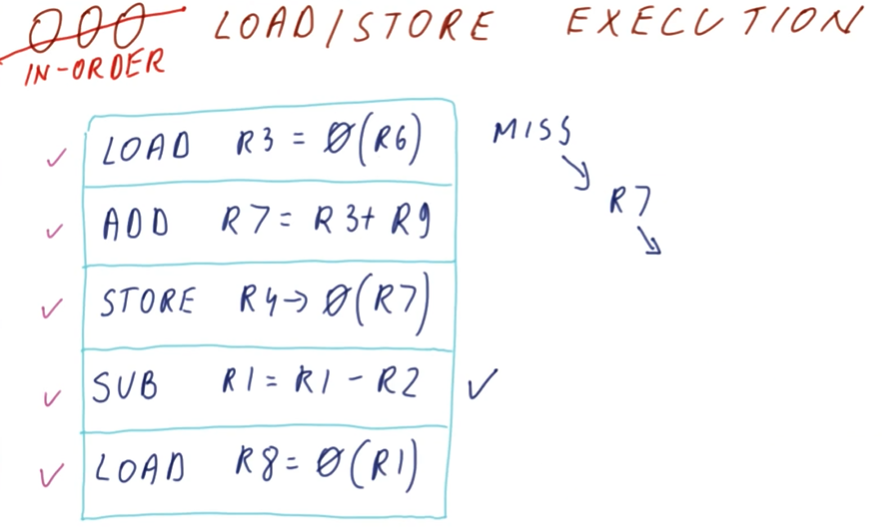 OOO LOAD/STORE EXECUTION
IN-ORDER
LOAD R3 = 0(R6) MISS
R7
ADD R7 = R3+ R9
STORE R4→ 0(R7)
SUB R1 = R1 - R2 ✓
LOAD R8 = 0(R1)